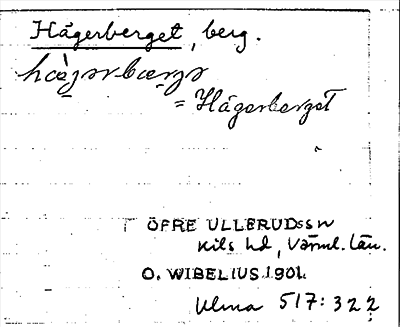 Hägerberget, berg.
hägərbærgə
= Hägerberget
ÖFRE ULLERUDSSN
Kils hd, Värml. län.
O. WIBELIUS 1901.
Ulma 517:322